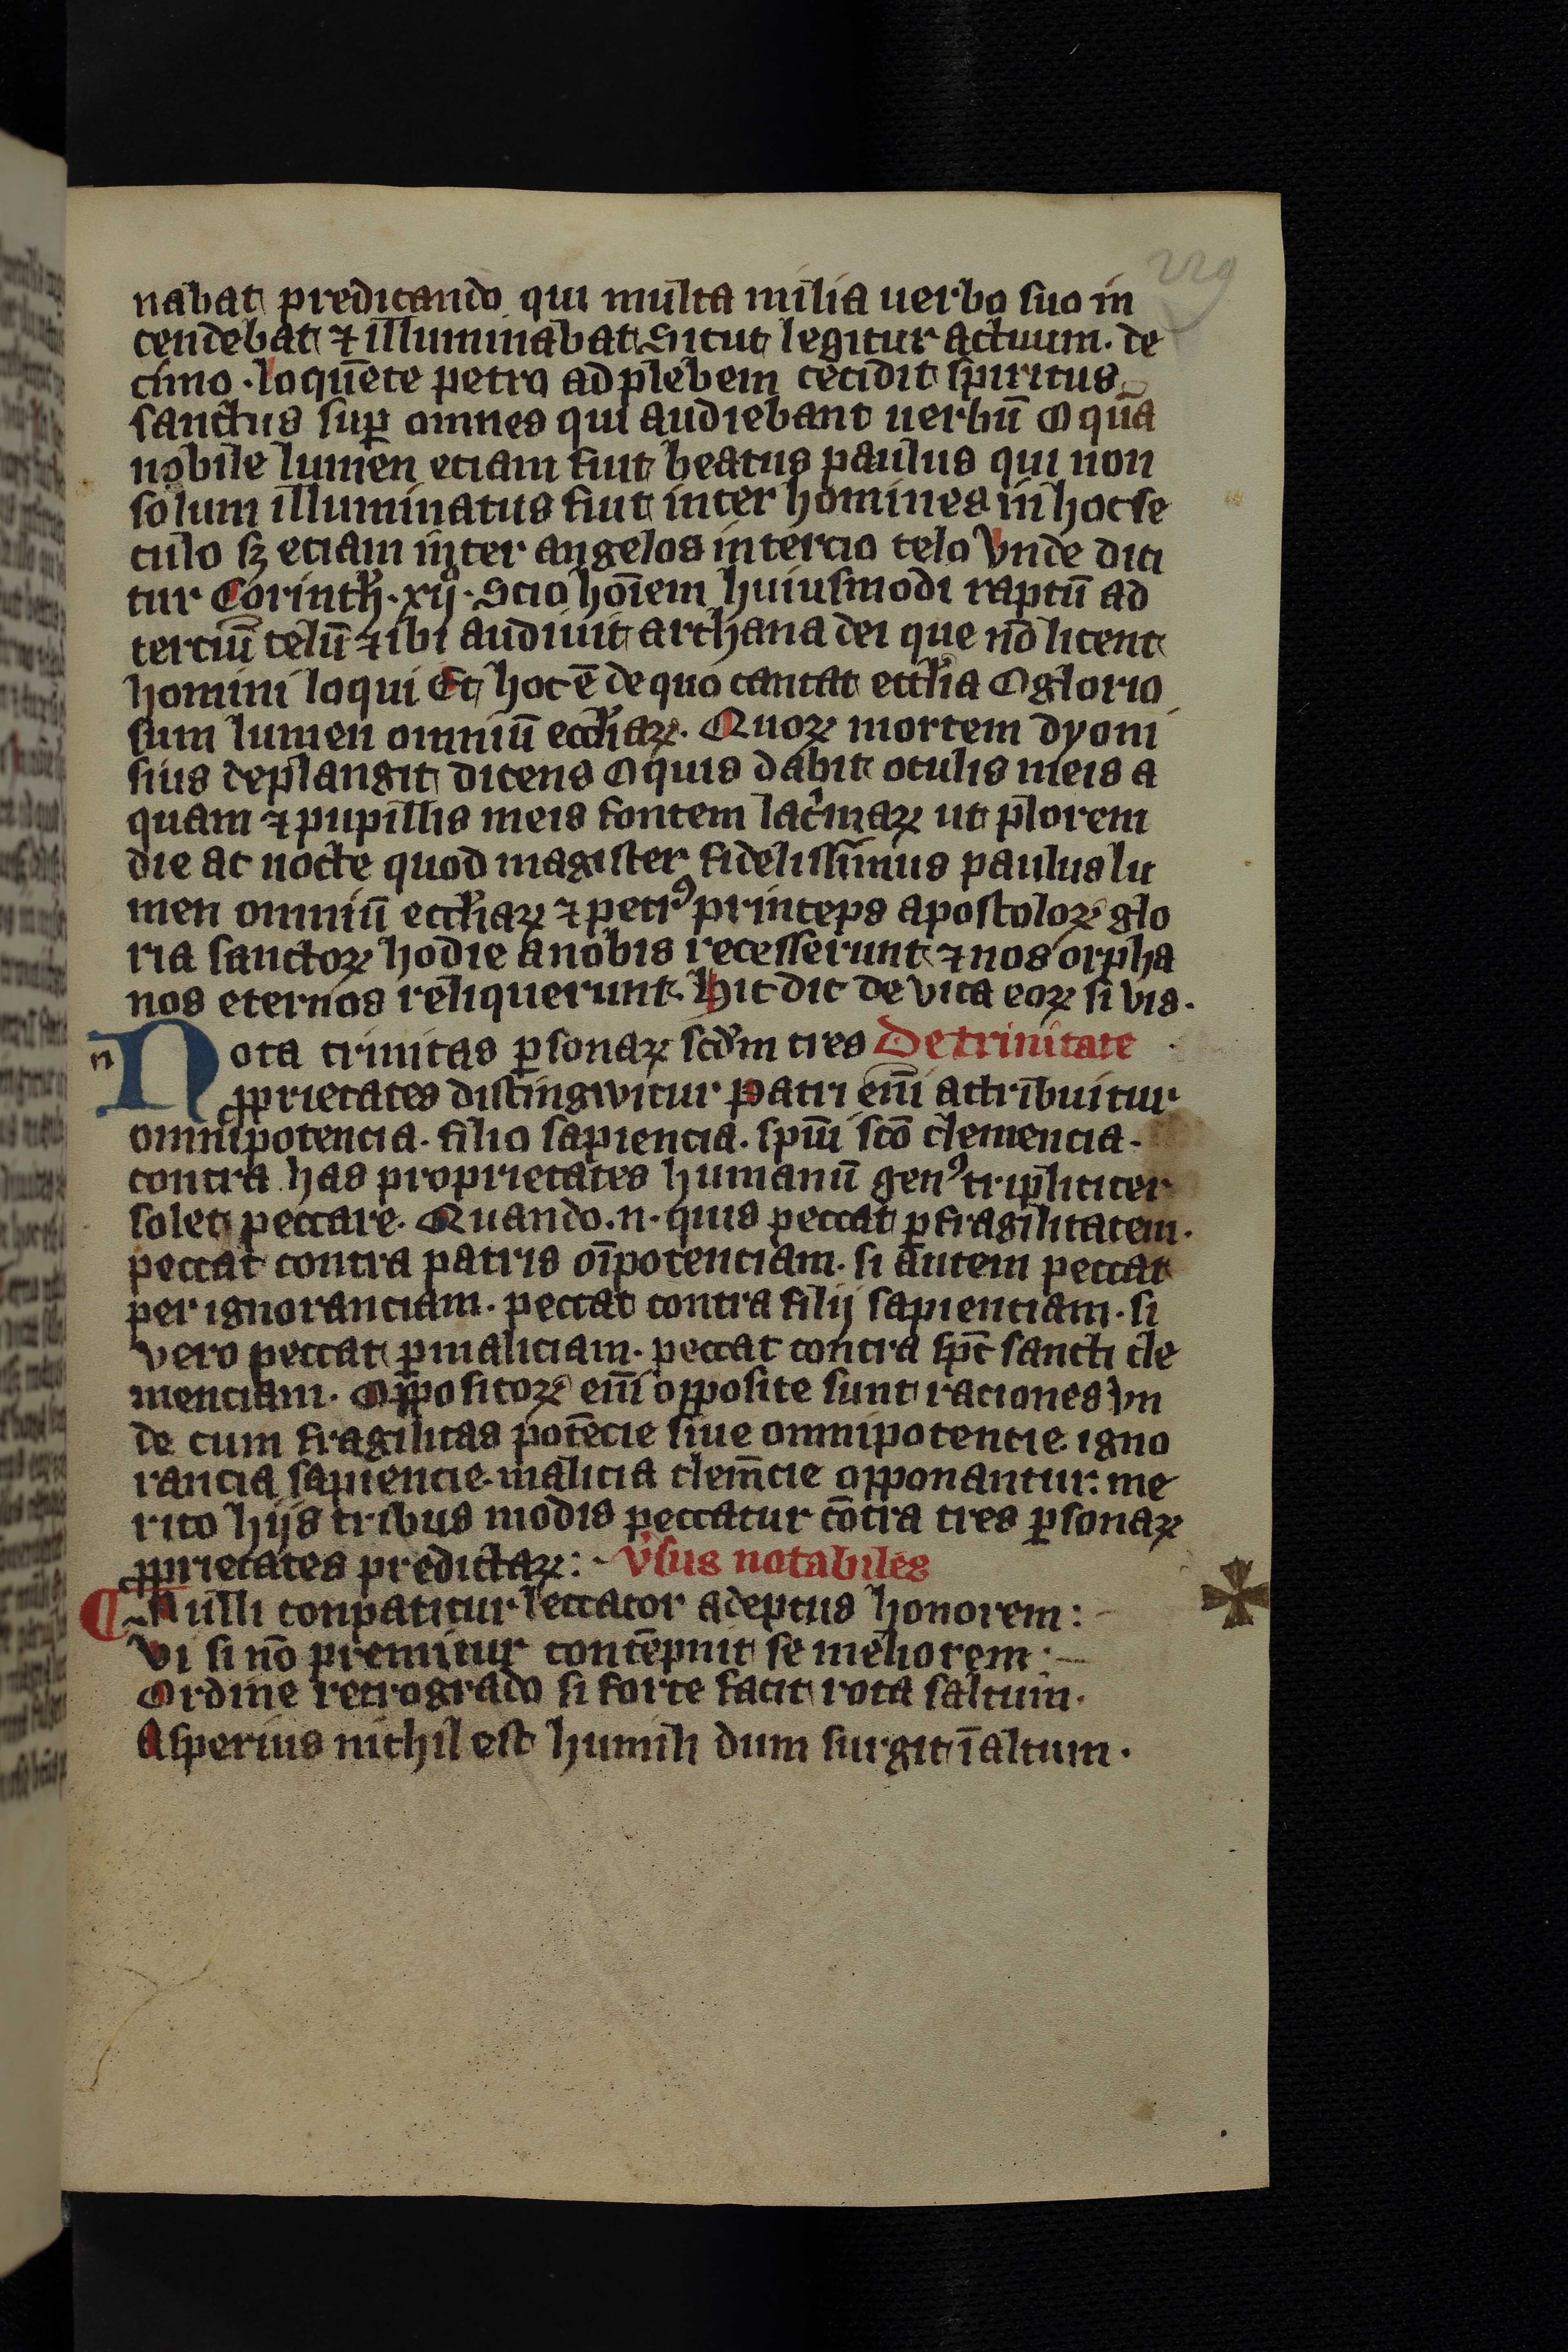 229
nabat predicando qui multa milia uerbo suo in
cendebat ⁊ illuminabat Sicut legitur actuum. de
cimo. loquēte petro ad plebem cecidit spiritus
sanctus suꝑ omnes qui audiebant uerbū O quā
nobile lumen eciam fuit beatus paulus qui non
solum illuminatus fuit inter homines in hoc se
culo sꝫ eciam inter angelos in tercio celo Vnde dici
tur Corinth̄. xij. Scio hoīem huiusmodi raptū ad
terciū celū ⁊ ibi audiuit archana dei que nō licent
homini loqui Et hoc ē de quo cantat eccl̄ia O glorio
sum lumen omniū eccl̄iaꝝ. Quoꝝ mortem dyoni
sius deplangit dicens O quis dabit oculis meis a
quam ⁊ pupillis meis fontem lac̓maꝝ ut p̄lorem
die ac nocte quod magister fidelissimus paulus lu
men omniū eccl̄iaꝝ ⁊ petrꝰ princeps apostoloꝝ glo
ria sanctoꝝ hodie a nobis recesserunt ⁊ nos orpha
nos eternos reliquerunt. Hic dic de vita eoꝝ si vis.
n Nota trinitas ꝑsonaꝝ scd̄m tres De trinitate
ꝓprietates distingwitur Patri enī attribuitur
omnipotencia. filio sapiencia. spūi scō clemencia.
contra has proprietates humanū genꝰ tripliciter
solet peccare. Quando .n. quis peccat ꝑ fragilitatem.
peccat contra patris oīpotenciam. si autem peccat
per ignoranciam. peccat contra filij sapienciam. si
vero peccat ꝑ maliciam. peccat contra spc̄ sancti cle
menciam. Oppositoꝝ enī opposite sunt raciones Vn
de cum fragilitas potēcie siue omnipotencie. igno
rancia sapiencie. malicia clem̄cie opponantur. me
rito hijs tribus modis peccatur cōtra tres ꝑsonaꝝ
ꝓprietates predictaꝝ: v̓sus notabiles
¶ Nulli conpatitur leccator adeptus honorem:
Vi si nō premitur contēpnit se meliorem:
Ordine retrogrado si forte facit rota saltum.
Asperius nichil est humili dum surgit ī altum.